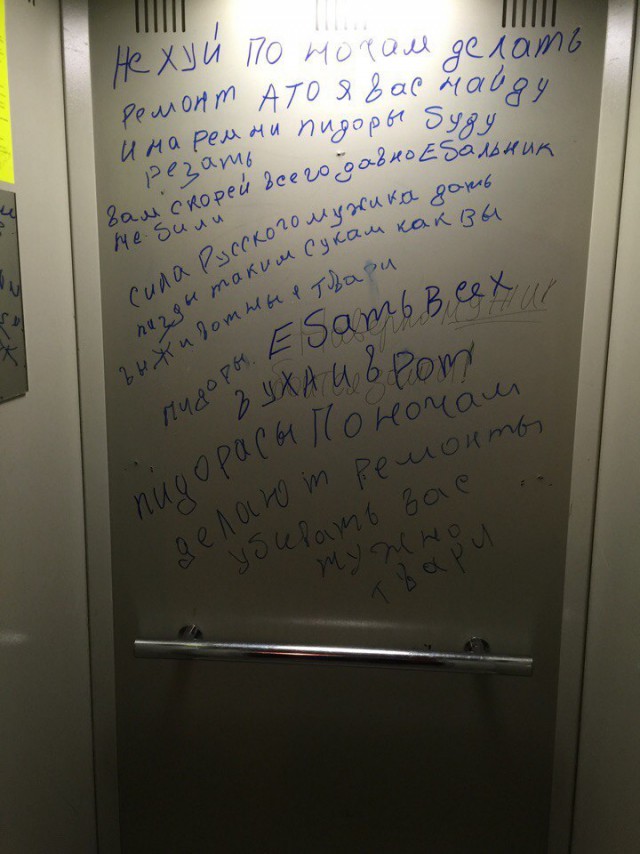 НЕ ХУЙ ПО НОЧАМ ДЕЛАТЬ
РЕМОНТ АТО Я ВАС НАЙДУ
И НА РЕМНИ ПИДОРЫ БУДУ
РЕЗАТЬ
ВАМ СКОРЕЙ ВСЕГО ДАВНО ЕБАЛЬНИК
НЕ БИЛИ
СИЛА РУССКОГО МУЖИКА ДАТЬ
ПИЗДЫ ТАКИМ СУКАМ КАК ВЫ
ВЫ ЖИВОТНЫЕ ТВАРИ
ПИДОРЫ. ЕБАТЬ ВСЕХ
В УХА И В РОТ
ПИДОРАСЫ ПО НОЧАМ
ДЕЛАЮТ РЕМОНТЫ
УБИВАТЬ ВАС
НУЖНО
ТВАРИ